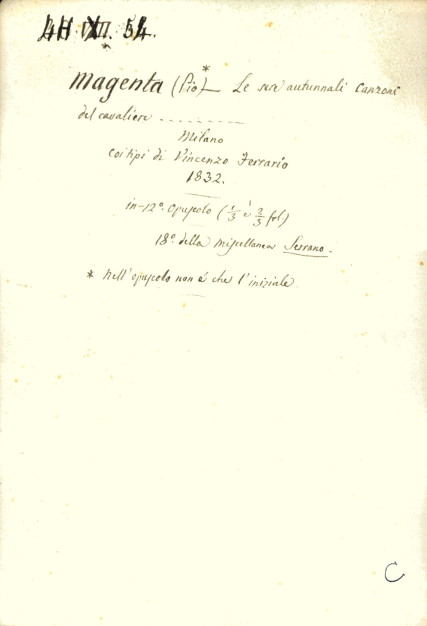 4H XII. 54.
*
Magenta (Pio) — Le sere autunnali Canzone
del cavaliere ...........
Milano
Coi tipi di Vincenzo Ferrario
1832.
in-12º. Opuscolo (1/3 è 2/3 fol)
18º. della Miscellanea Serrano.
* Nell'opuscolo non é che l'iniziale.
C